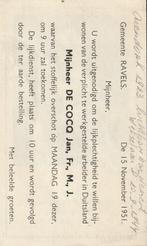 Gemeente RAVELS. De 15 November 1951.
Mijnheer,
U wordt uitgenoodigd om de lijkplechtigheid te willen bij-
wonen van de verplicht te werkgestelde arbeider in Duitsland
Mijnheer DE COCQ Jan, Fr., M., J.
waarvan het stoffelijk overschot op MAANDAG 19 dezer,
om 9 uur zal toekomen.
De lijkdienst, heeft plaats om 10 uur en wordt gevolgd
door de ter aarde bestelling.
Met beleefde groeten.